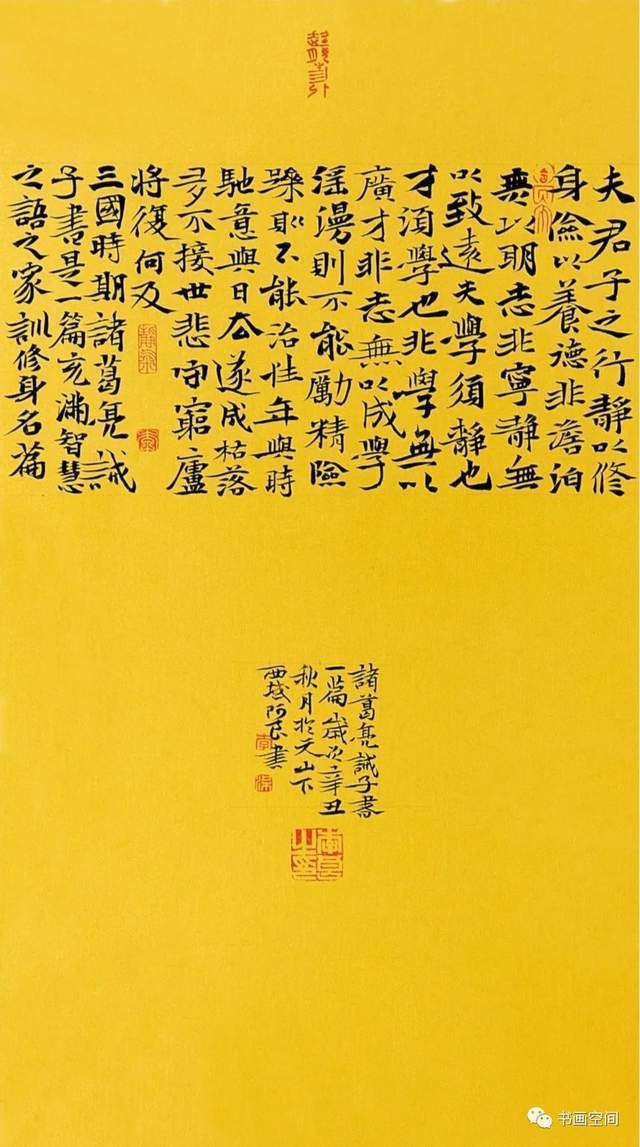 夫君子之行靜以修
身儉以養德非澹泊
無以明志非寧靜無
以致遠夫學須靜也
才須學也非學無以
廣才非志無以成學
淫漫則不能勵精險
躁則不能治性年與時
馳意與日去遂成枯落
多不接世悲守窮廬
將復何及
三國時期諸葛亮誡
子書是一篇充滿智慧
之語之家訓修身名篇
諸葛亮誡子書
一篇歲次辛丑
秋月於天山下
西域阿良書
书画空间